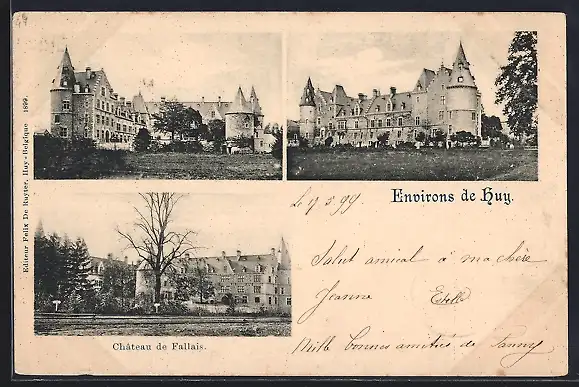 Editeur Félix De Ruyter, Huy-Belgique 1899.
Environs de Huy.
Le 5 99
Salut amical à ma chère
Jeanne Estelle
Mille bonnes amitiés de Fanny
Château de Fallais.